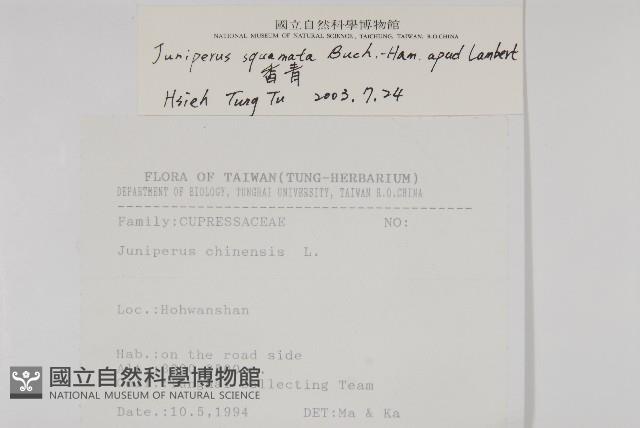 國立自然科學博物館
NATIONAL MUSEUM OF NATURAL SCIENCE, TAICHUNG, TAIWAN, R.O.CHINA
Juniperus squamata Buch.-Ham. apud Lambert
香青
Hsieh Tung Tu 2003.7.24
FLORA OF TAIWAN(TUNG-HERBARIUM)
DEPARTMENT OF BIOLOGY, TUNGHAI UNIVERSITY, TAIWAN R.O.CHINA
Family:CUPRESSACEAE NO:
Juniperus chinensis L.
Loc.:Hohwanshan
Hab.:on the road side
Collecting Team
國立自然科學博物館
NATIONAL MUSEUM OF NATURAL SCIENCE
Date.:10.5,1994 DET:Ma & Ka